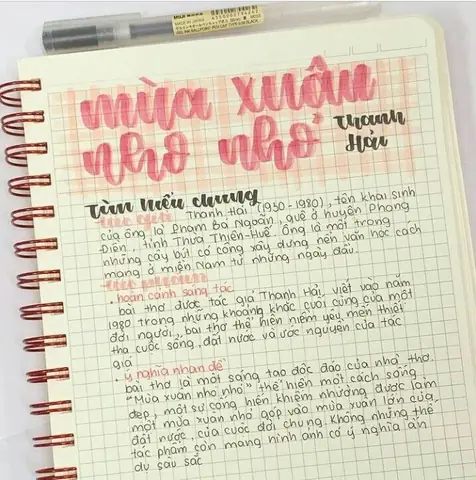 MUJI
MADE IN JAPAN
mùa xuân
nho nhỏ
Thanh
Hải
tìm hiểu chung
tác giả Thanh Hải (1930 - 1980), tên khai sinh
của ông là Phạm Bá Ngoãn, quê ở huyện Phong
Điền, tỉnh Thừa Thiên-Huế. Ông là một trong
những cây bút có công xây dựng nền văn học cách
mạng ở miền Nam từ những ngày đầu.
tác phẩm
. hoàn cảnh sáng tác
bài thơ được tác giả Thanh Hải, viết vào năm
1980 trong những khoảng khắc cuối cùng của một
đời người, bài thơ thể hiện niềm yêu mến thiết
tha cuộc sống, đất nước và ước nguyện của tác
giả
. ý nghĩa nhan đề
bài thơ là một sáng tạo độc đáo của nhà thơ.
"Mùa xuân nho nhỏ" thể hiện một cách sống
đẹp, một sự cống hiến khiêm nhường được làm
một mùa xuân nhỏ góp vào mùa xuân lớn của
đất nước, của cuộc đời chung. Không những thế
tác phẩm còn mang hình ảnh có ý nghĩa ẩn
dụ sâu sắc